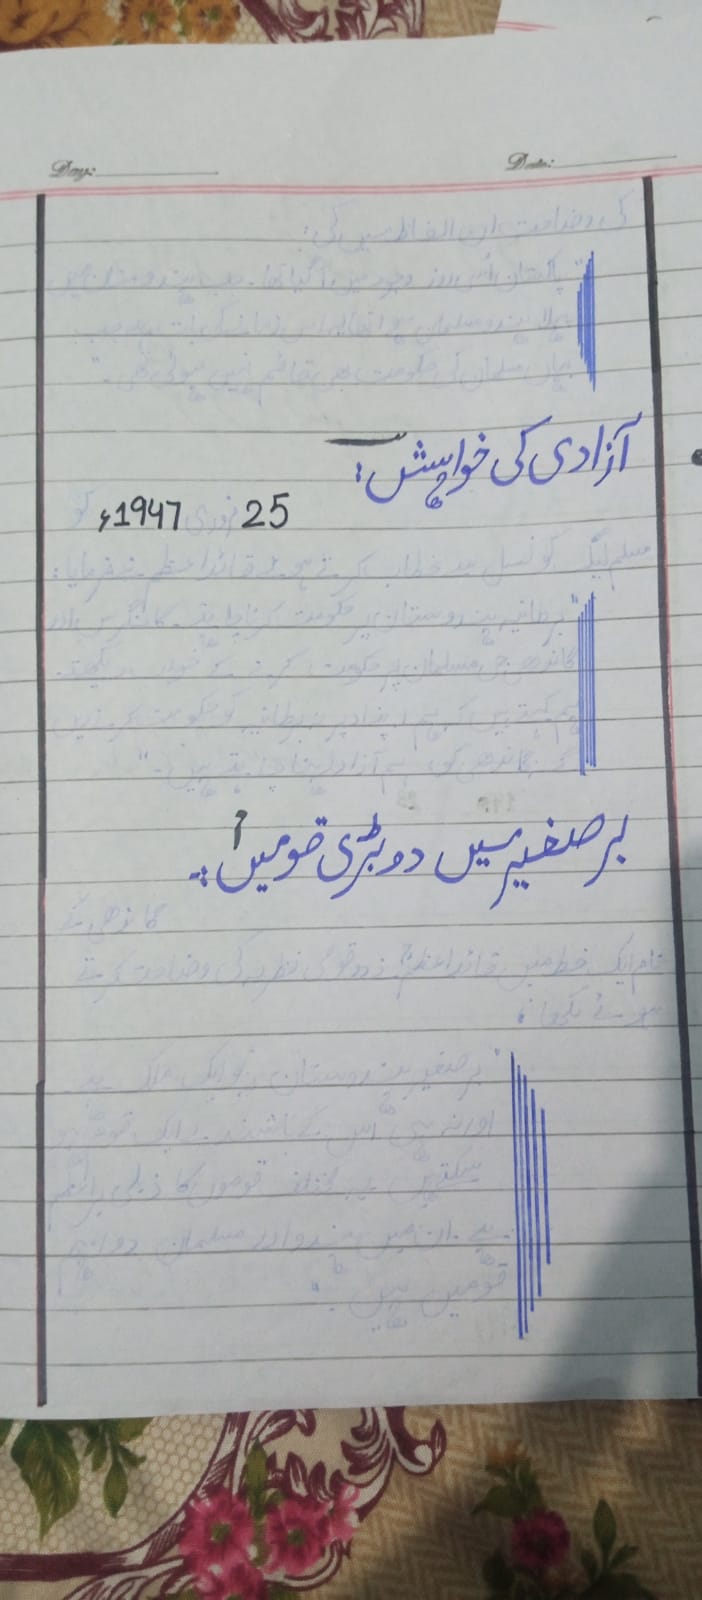 Day:
Date:
کی وضاحت ان الفاظ میں کی:
"پاکستان اُس روز وجود میں آ گیا تھا۔ جب ہندوستان میں
پہلا ہندو مسلمان ہوا تھا۔ یہ اس زمانے کی بات ہے جب
یہاں مسلمان کی حکومت بھی قائم نہیں ہوئی تھی۔"
آزادی کی خواہش:
25 فروری 1947ء کو
مسلم لیگ کونسل سے خطاب کرتے ہوئے قائداعظم نے فرمایا:
"برطانیہ ہندوستان پر حکومت کرنا چاہتا ہے۔ کانگریس اور
گاندھی جی مسلمان پر حکومت کرنے کے خواب
ہم کہتے ہیں کہ ہم اپنے اوپر نہ برطانیہ کو حکومت کرنے دیں
گے نہ گاندھی کو، ہم آزاد رہنا چاہتے ہیں۔"
برصغیر میں دو بڑی قومیں:۔
گاندھی کے
نام ایک خط میں قائداعظمؒ نے دو قومی نظریہ کی وضاحت کرتے
ہوئے لکھا:
"برصغیر ہندوستان نہ تو ایک ملک ہے
اور نہ ہی اس کے باشندے ایک قوم ہو
سکتے ہیں یہ مختلف قوموں کا ذیلی براعظم
ہے ان میں ہندو اور مسلمان دو اہم
قومیں ہیں۔"